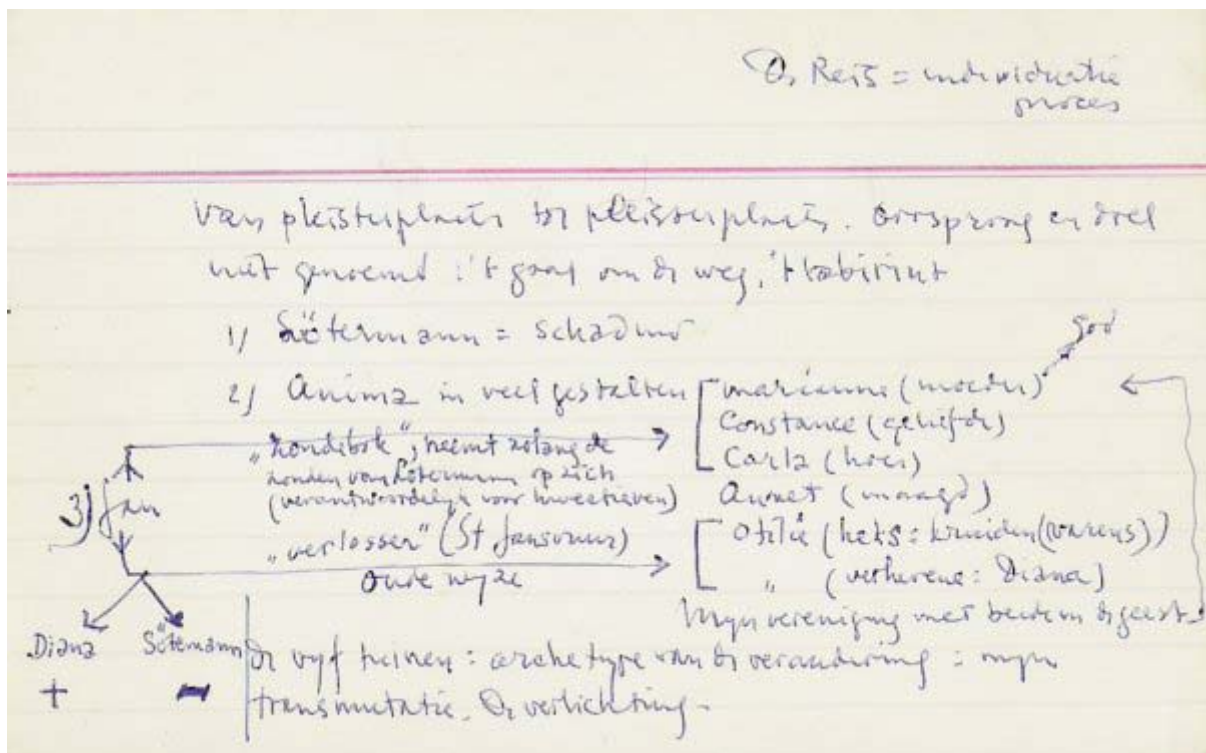 De Reis = individuatie
proces
van pleisterplaats tot pleisterplaats. oorsprong en doel
niet genoemd : 't gaat om de weg, 't labirint
1) Sötermann = schaduw
god
2) Anima in veel gestalten
marianne (moeder)
Constance (geliefde)
Carla (hoer)
Annet (maagd)
Otilie (heks: kruiden (varens))
" (verheven: Diana)
Mijn vereniging met beiden in de geest.
3) Jan
"zondebok", neemt zolang de
zonden van Sötermann op zich
(verantwoordelijk voor invectieven)
"verlosser" (St Jansvuur)
Oude wijze
Diana
+
Sötemann
-
De vijf treinen : archetype van de verandering : mijn
transmutatie. De verlichting.